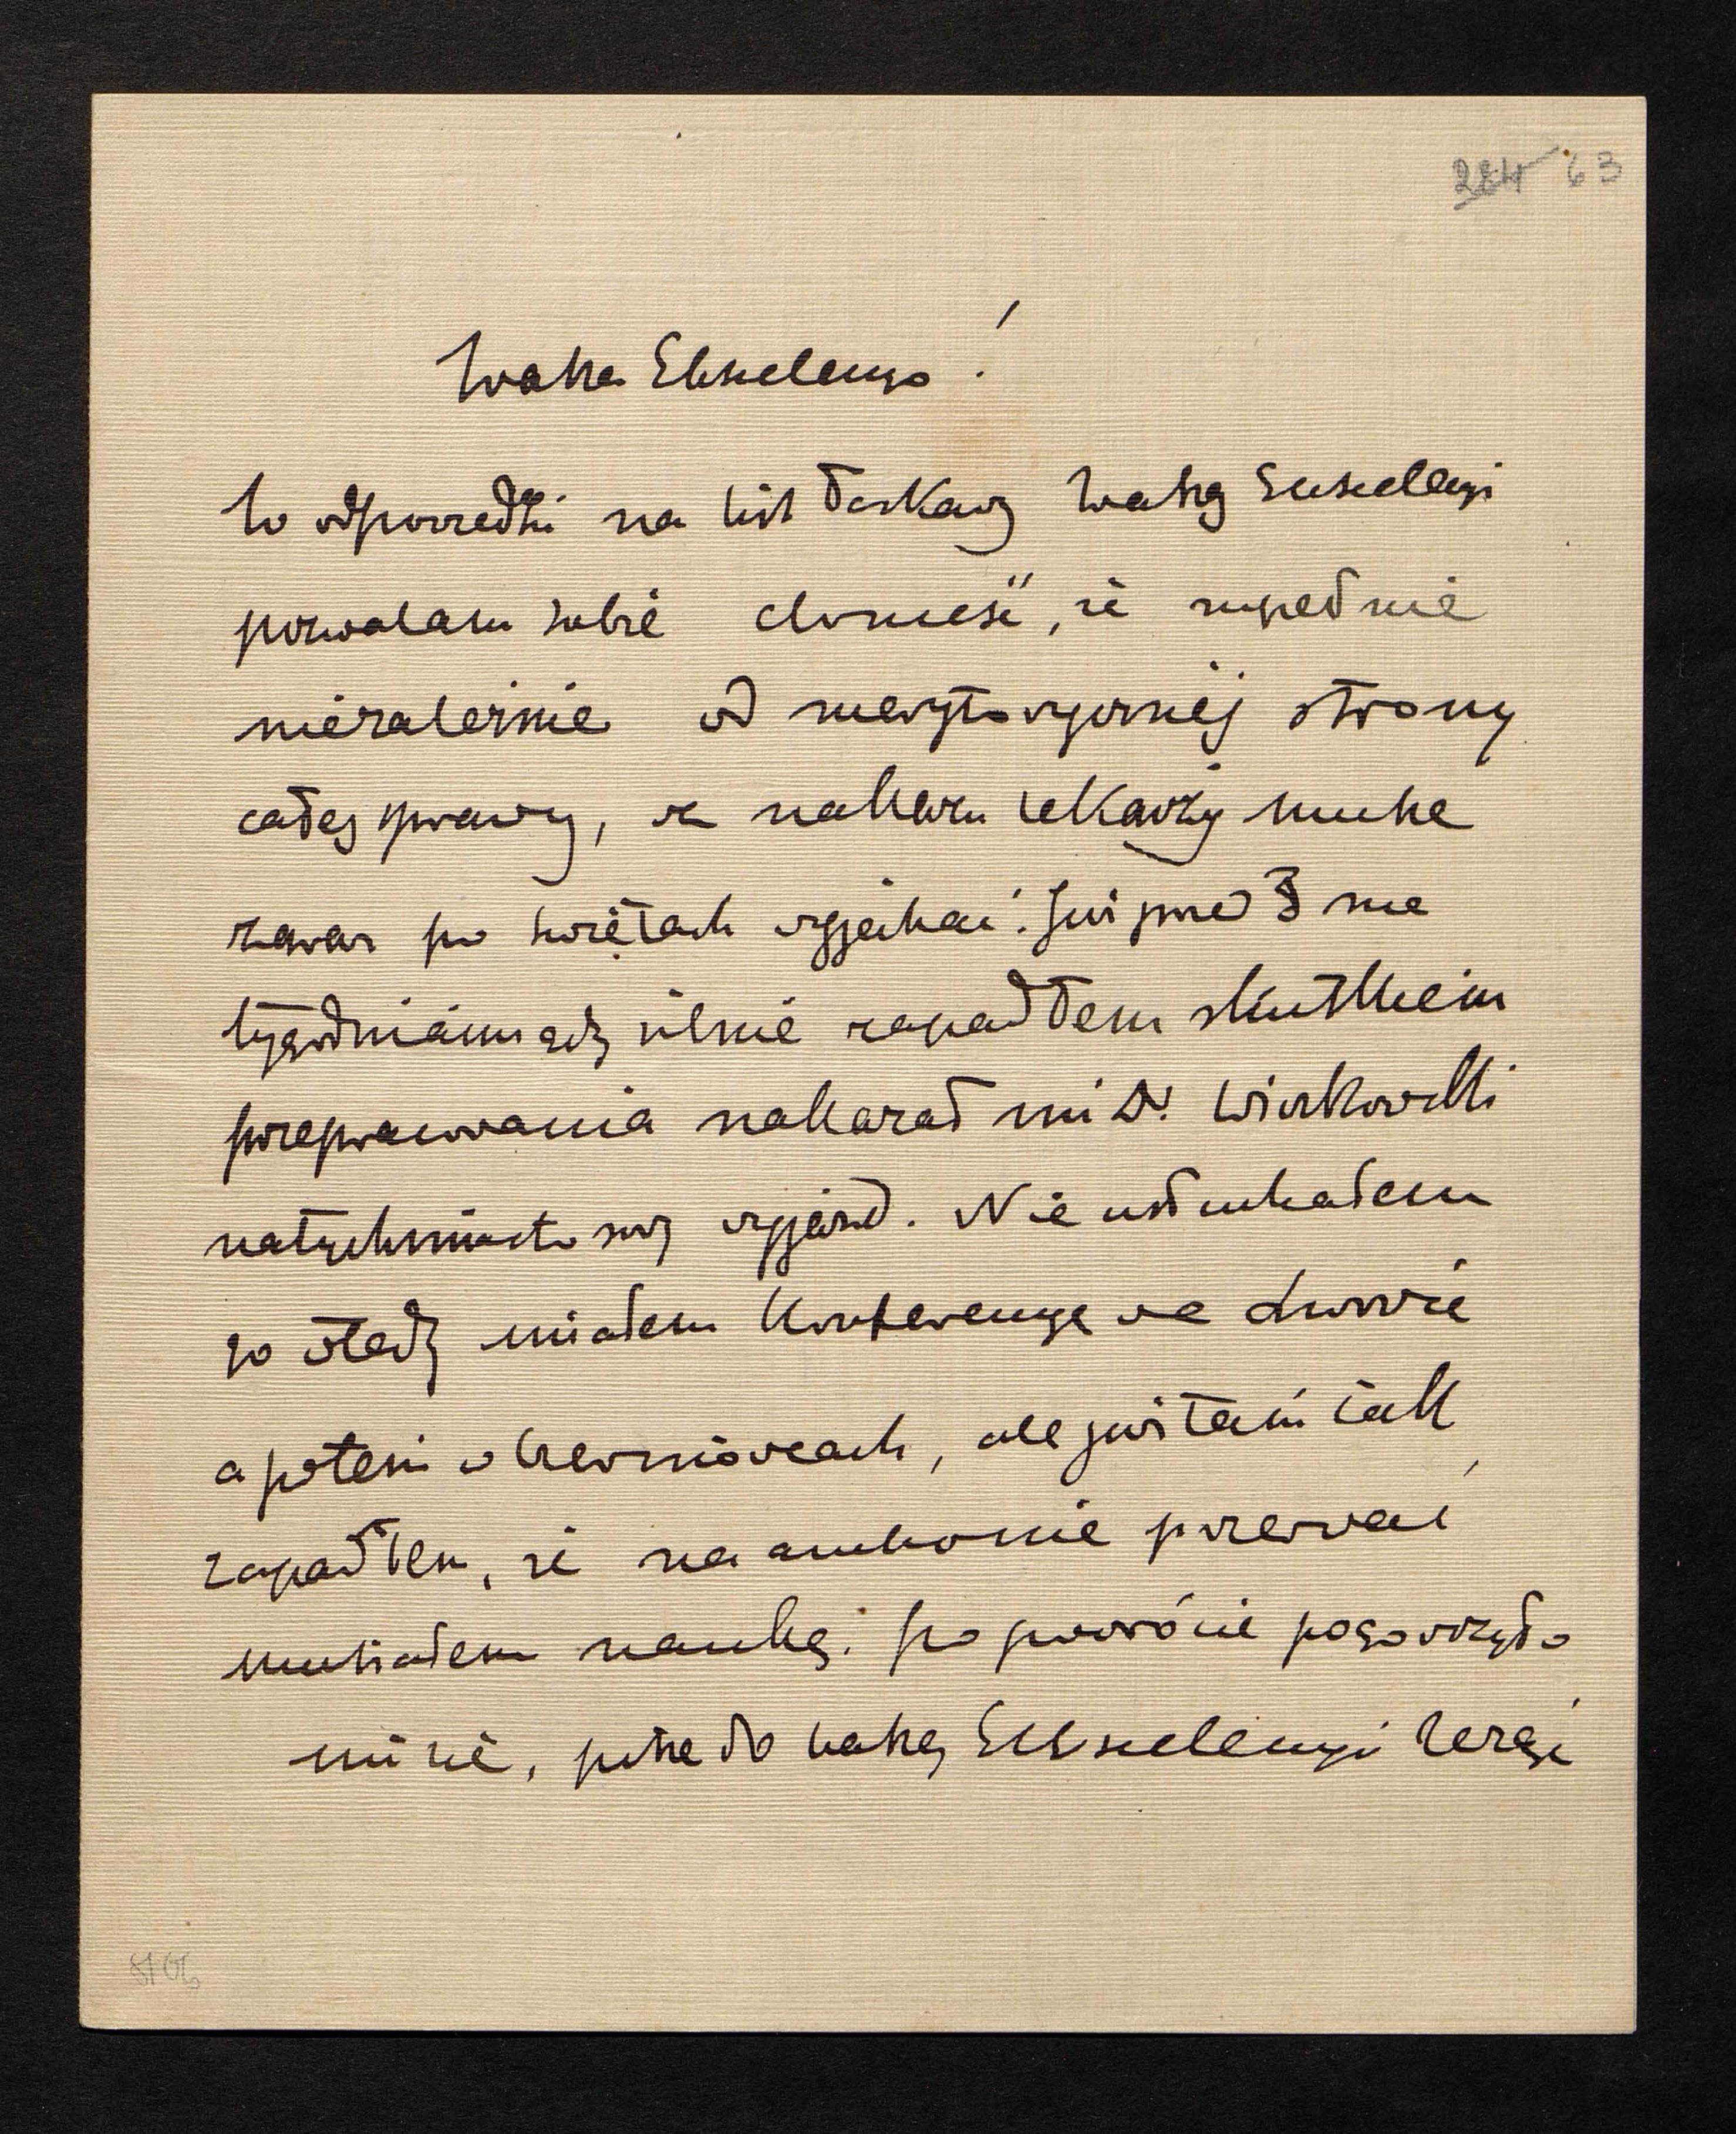 224 63
Wasza Ekscelencyo!
W odpowiedzi na list łaskawy Waszej Ekscelencyi
pozwalam sobie donieść, że zupełnie
niezależnie od merytorycznej strony
całej sprawy, z nakazu lekarzy muszę
zaraz po świętach wyjechać. Już przed 3 ma
tygodniami gdy silnie zapadłem skutkiem
przepracowania nakazał mi Dr. Wiczkowski
natychmiastowy wyjazd. Nie usłuchałem
go wtedy miałem Konferencye we Lwowie
a potem w Czerniowcach, ale już tam tak
zapadłem, że na ambonie przerwać
musiałem naukę. Po powrócie pogorszyło
mi się, piszę do Waszej Ekscelencyi leżąc